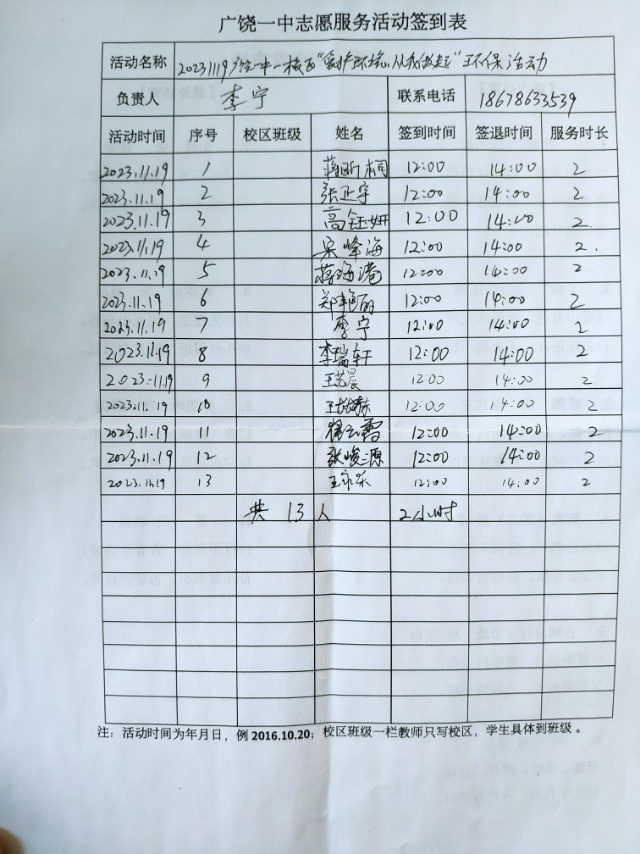 广饶一中志愿服务活动签到表
活动名称 20231119广饶一中一校区“爱护环境,从我做起”环保活动
负责人 李宁 联系电话 18678633539
活动时间 序号 校区班级 姓名 签到时间 签退时间 服务时长
2023.11.19 1 蒋昕桐 12:00 14:00 2
2023.11.19 2 张正宇 12:00 14:00 2
2023.11.19 3 高钰妍 12:00 14:00 2
2023.11.19 4 宋峰海 12:00 14:00 2
2023.11.19 5 12:00 14:00 2
2023.11.19 6 郑艳丽 12:00 14:00 2
2023.11.19 7 李宁 12:00 14:00 2
2023.11.19 8 李瑞轩 12:00 14:00 2
2023.11.19 9 王艺晨 12:00 14:00 2
2023.11.19 10 12:00 14:00 2
2023.11.19 11 12:00 14:00 2
2023.11.19 12 张峻源 12:00 14:00 2
2023.11.19 13 12:00 14:00 2
共 13 人 2小时
注：活动时间为年月日，例 2016.10.20；校区班级一栏教师只写校区，学生具体到班级。